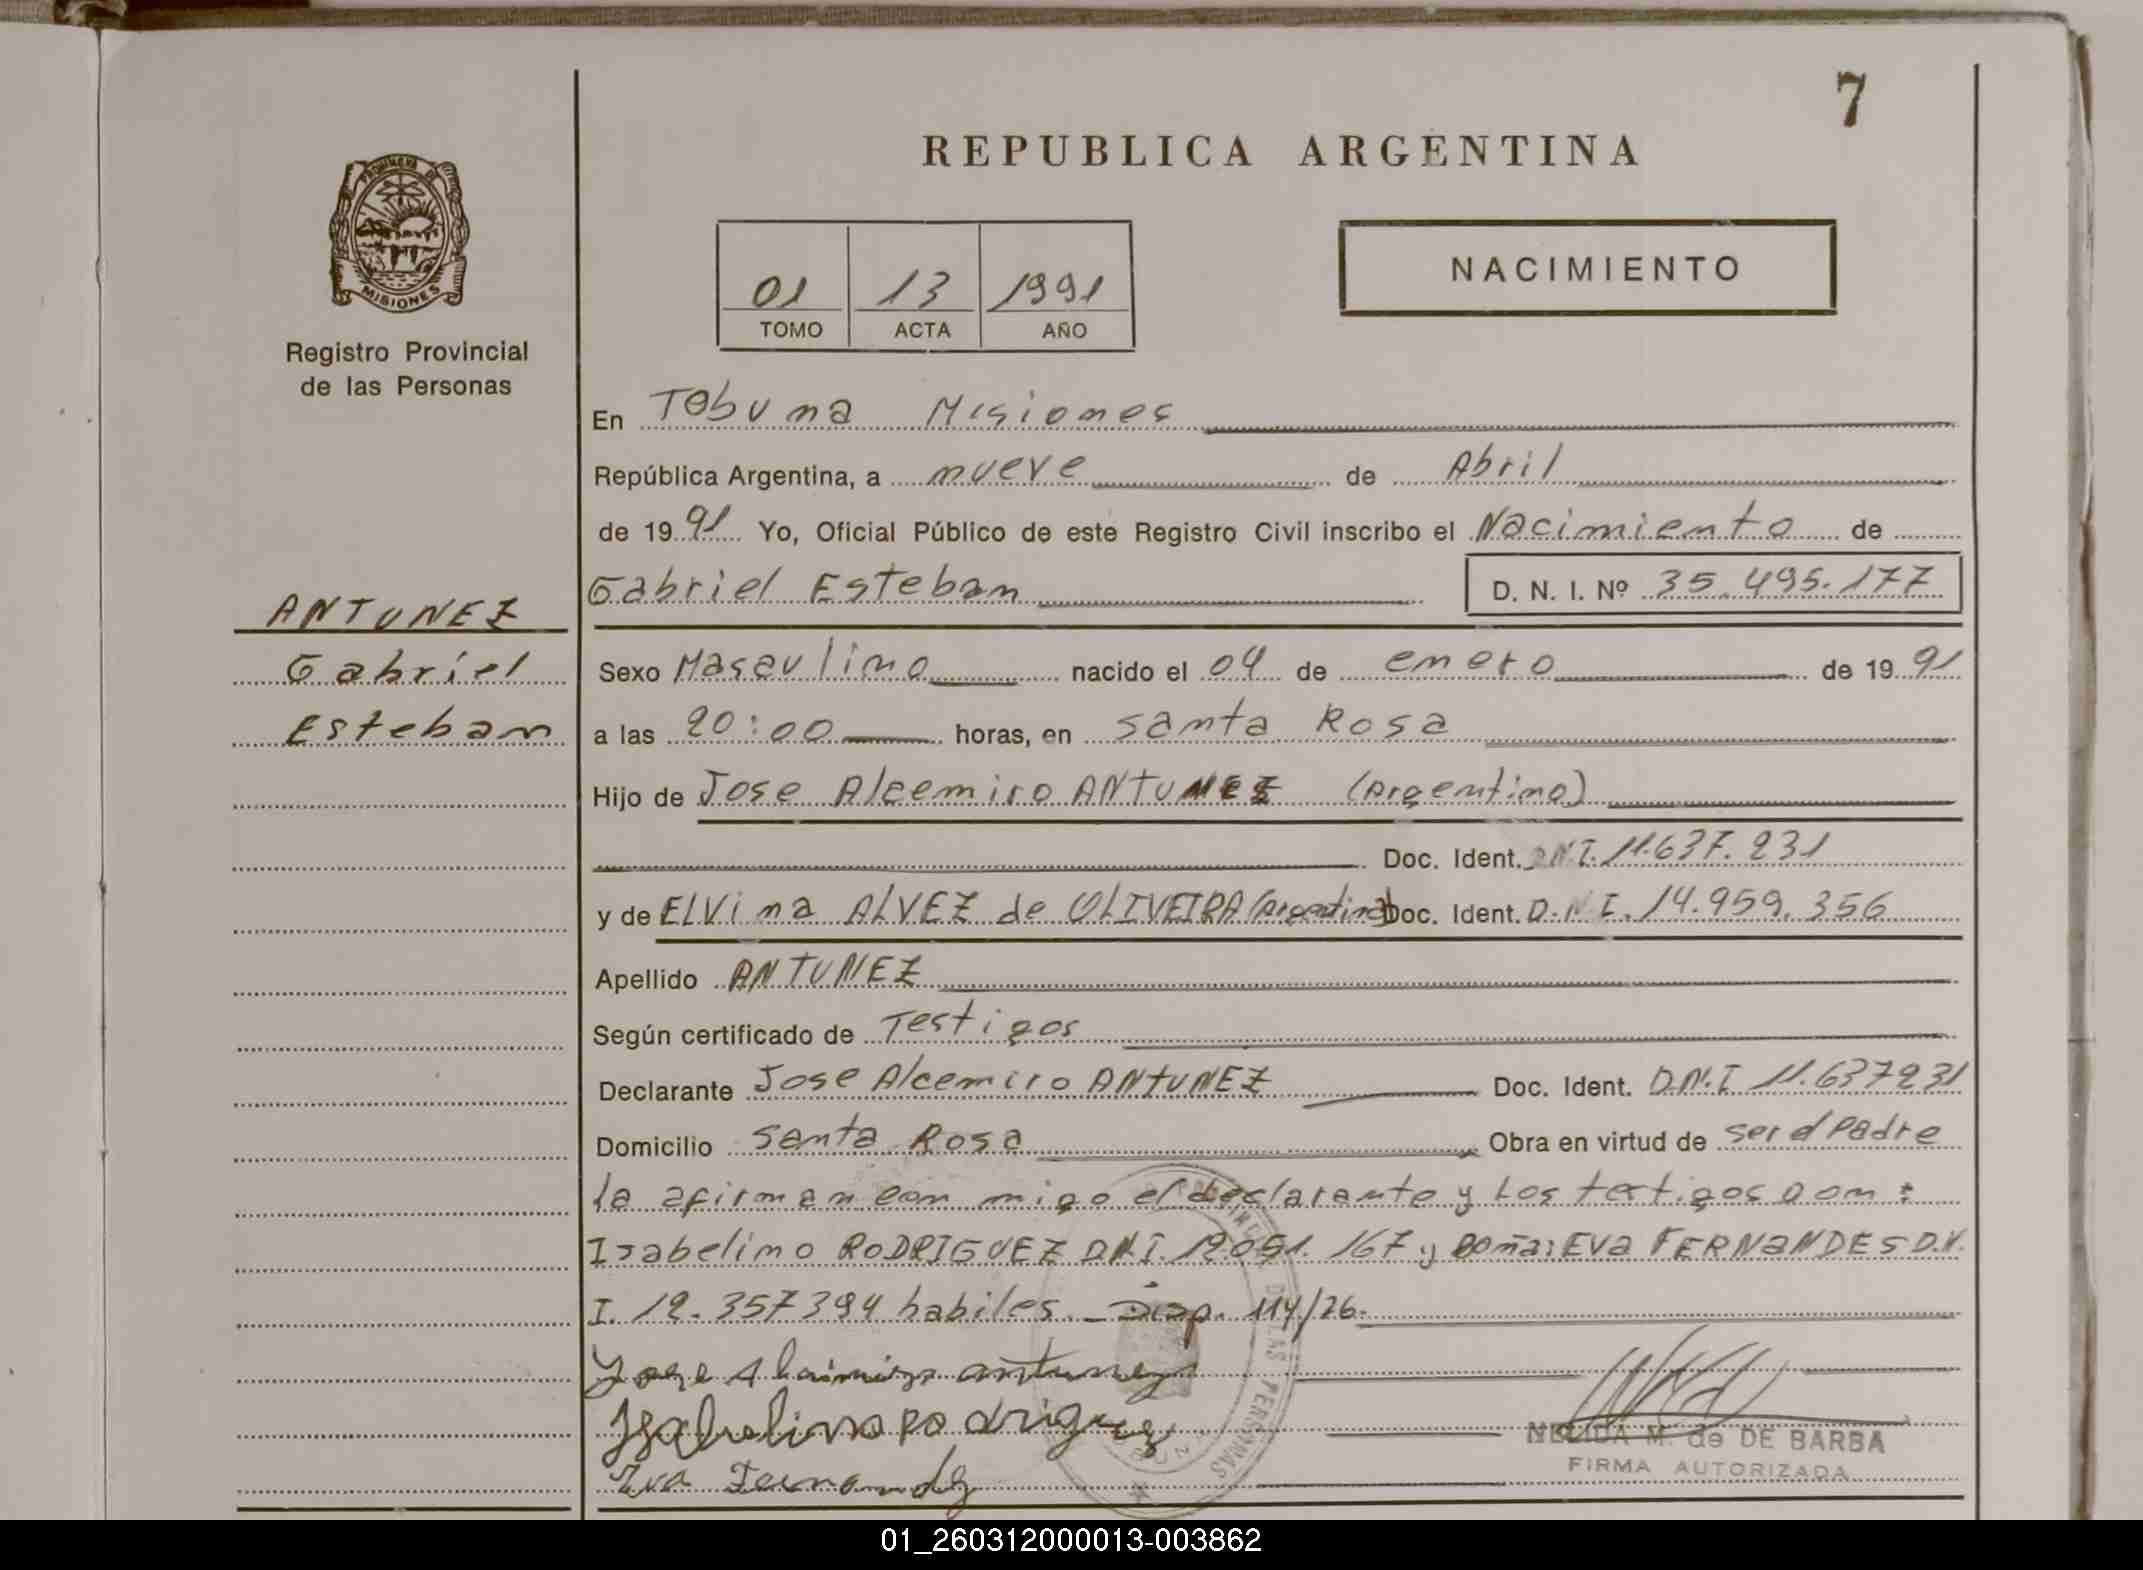 7
REPUBLICA ARGENTINA
PROVINCIA DE
MISIONES
Registro Provincial
de las Personas
01 13 1991
TOMO ACTA AÑO
NACIMIENTO
En Tobuna Misiones
República Argentina, a nueve de Abril
de 1991 Yo, Oficial Público de este Registro Civil inscribo el Nacimiento de
ANTUNEZ
Gabriel
Esteban
Gabriel Esteban D. N. I. Nº 35.495.177
Sexo Masculino nacido el 04 de enero de 1991
a las 20:00 horas, en Santa Rosa
Hijo de Jose Alcemiro ANTUNEZ (Argentino)
Doc. Ident. D.N.I. 11.637.231
y de ELVina ALVEZ de OLIVEIRA (Argentina) Doc. Ident. D.N.I. 14.959.356
Apellido ANTUNEZ
Según certificado de Testigos
Declarante Jose Alcemiro ANTUNEZ Doc. Ident. D.N.I 11.637231
Domicilio Santa Rosa Obra en virtud de ser el Padre
la afirman con migo el declarante y Los testigos Don:
Isabelino RODRIGUEZ D.N.I. 12.051.167 y Doña: EVa FERNaNDES D.N.
I. 12.357394 habiles. _ Disp. 114/76.
Jose Alcimiro antunez
Isabelino Rodriguez
Eva Fernandez
NELIDA M. de DE BARBA
FIRMA AUTORIZADA
DE LAS PERSONAS
01_260312000013-003862